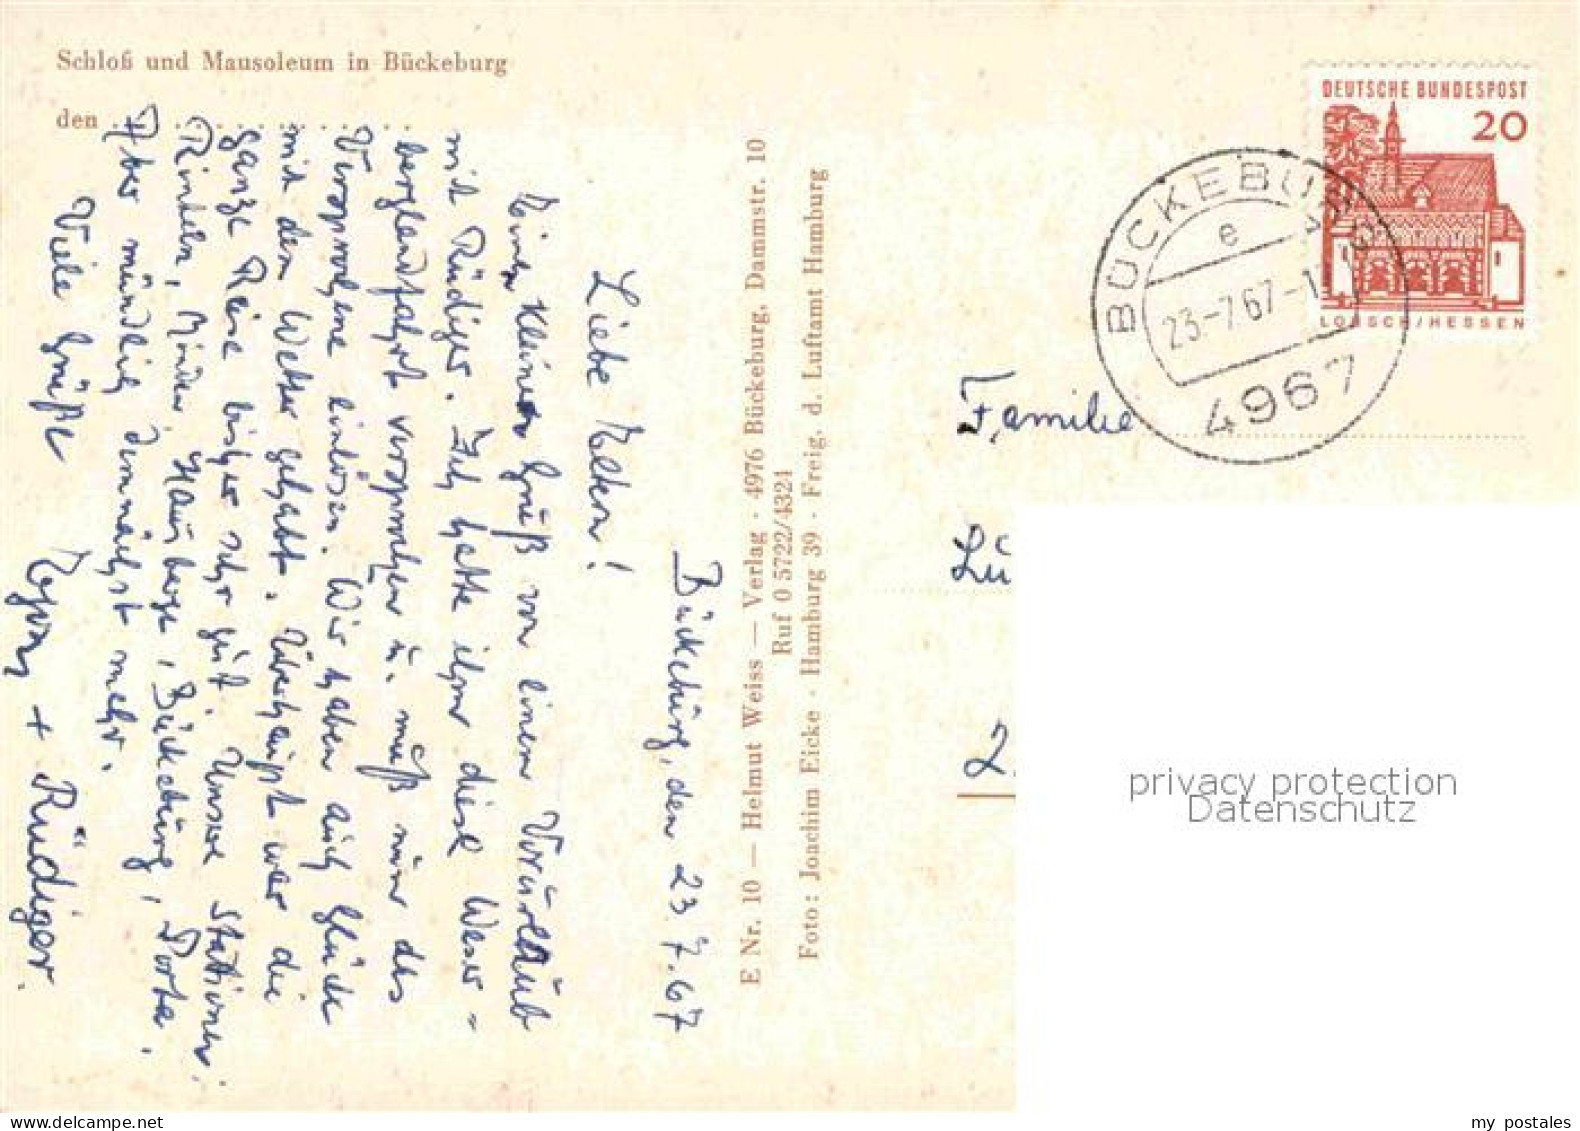 Schloß und Mausoleum in Bückeburg
den
Bückeburg, den 23 7.67
Liebe Eltern!
Einen kleinen Gruß von einem Vorurlaub
mit Rüdiger. Ich hatte ihm diese Weser=
berglandfahrt versprochen u. muß nun das
Versprochene einlösen. Wir haben auch Glück
mit dem Wetter gehabt. Überhaupt war die
ganze Reise bisher sehr gut. Unsere Stationen:
Rinteln, Minden, Hausberge, Bückeburg, Porta.
Aber mündlich demnächst mehr.
Viele Grüße
+ Rüdiger.
E Nr. 10 — Helmut Weiss — Verlag · 4976 Bückeburg, Dammstr. 10
Ruf 0 5722/4324
Foto: Joachim Eicke · Hamburg 39 · Freig. d. Luftamt Hamburg
DEUTSCHE BUNDESPOST
20
LORSCH/HESSEN
BÜCKEBURG
e
23.-7.67-1
4967
Familie
Lü
2
privacy protection
Datenschutz
my postales